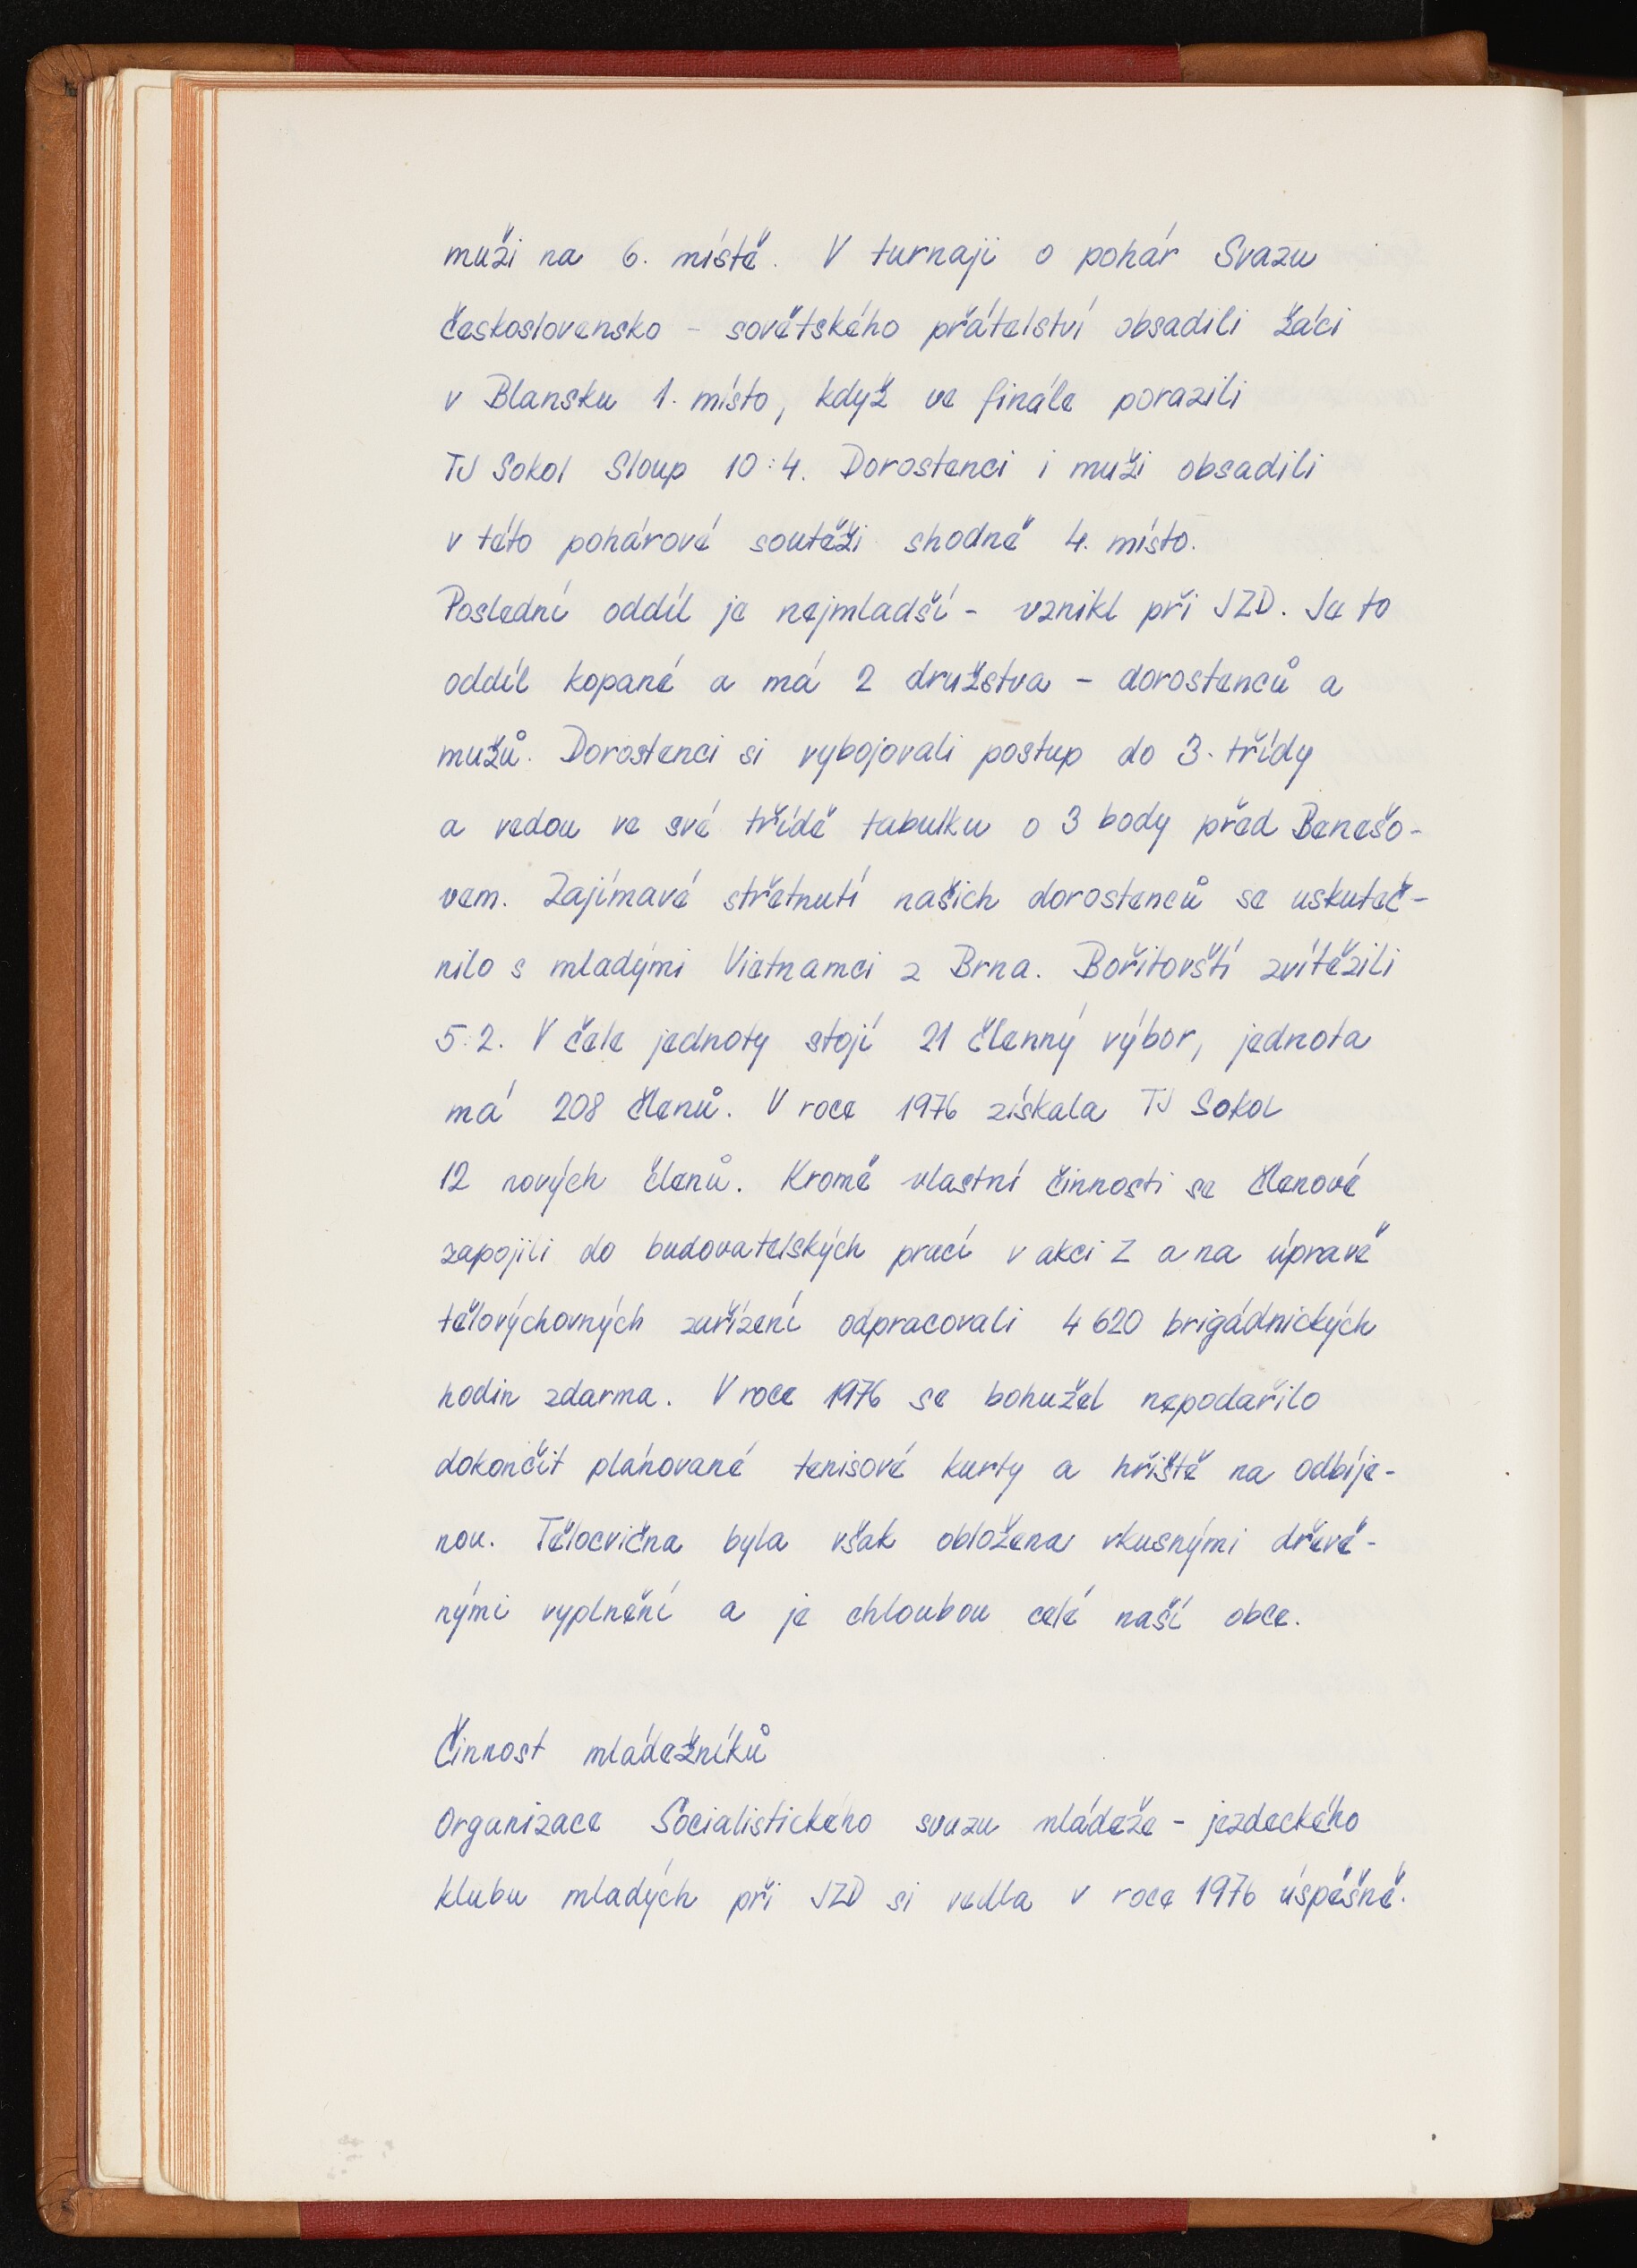 muži na 6. místě. V turnaji o pohár Svazu
československo - sovětského přátelství obsadili žáci
v Blansku 1. místo, když ve finále porazili
TJ Sokol Sloup 10:4. Dorostenci i muži obsadili
v této pohárové soutěži shodně 4. místo.
Poslední oddíl je nejmladší - vznikl při JZD. Je to
oddíl kopané a má 2 družstva - dorostenců a
mužů. Dorostenci si vybojovali postup do 3. třídy
a vedou ve své třídě tabulku o 3 body před Benešo-
vem. Zajímavé střetnutí našich dorostenců se uskuteč-
nilo s mladými Vietnamci z Brna. Bořitovští zvítězili
5:2. V čele jednoty stojí 21 členný výbor, jednota
má 208 členů. V roce 1976 získala TJ Sokol
12 nových členů. Kromě vlastní činnosti se členové
zapojili do budovatelských prací v akci Z a na úpravě
tělovýchovných zařízení odpracovali 4 620 brigádnických
hodin zdarma. V roce 1976 se bohužel nepodařilo
dokončit plánované tenisové kurty a hřiště na odbíje-
nou. Tělocvična byla však obložena vkusnými dřevě-
nými vyplnění a je chloubou celé naší obce.
Činnost mládežníků
Organizace Socialistického svazu mládeže - jezdeckého
klubu mladých při JZD si vedla v roce 1976 úspěšně.